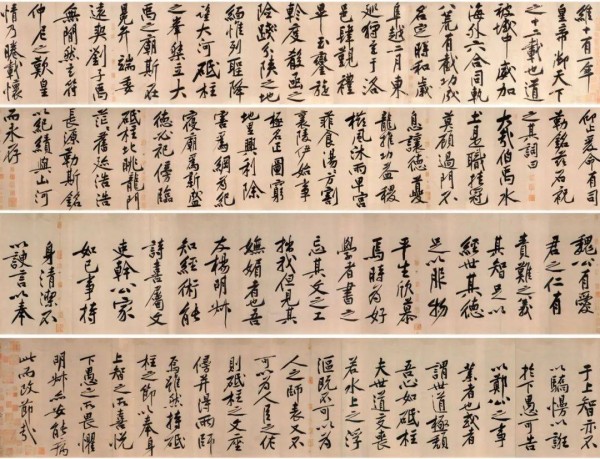 維十有一年
皇帝御天下
之十二載也道
被域中威加
海外六合同軌
八荒有截功成
名遂時和歲
阜越二月東
巡狩至于洛
邑肆覲禮
畢玉鑾旋
軫度殽函之
險踐分陝之地
緬惟列聖降
望大河砥柱
之峯桀立大
禹之廟斯在
冕弁端委
遠契劉子禹
無間然言符
仲尼之歎皇
情乃睠載懷
仰止爰命有司
勒銘茲石祝
之其詞曰
大哉伯禹水
土是職挂冠
莫顧過門不
息讓德夔
龍推功益稷
櫛風沐雨卑宮
菲食湯方割
襄陵伊始事
極名正圖窮
地里興利除
害為綱為紀
寢廟為新盛
德必祀傍臨
砥柱北眺龍門
茫茫舊迹浩浩
長源勒斯銘
以紀績與山河
而永存
魏公有愛
君之仁有
責難之義
其智足以
經世其德
足以服物
平生欣慕
焉時為好
學者書之
忘其文之工
拙我但見其
嫵媚者也吾
友楊明叔
知經術能
詩喜屬文
吏幹公家
如己事持
身清潔不
以諛言以奉
于上智亦不
以驕慢以誑
於下愚可告
以鄭公之事
業者也或者
謂世道極頹
吾心如砥柱
夫世道交喪
若水上之浮
漚既不可以為
人之師表又不
可以為人臣之作
則砥柱之文座
傍並得兩師
焉雖然持砥
柱之節以奉身
上智之所喜悅
下愚之所畏懼
明叔亦安能病
此而改節哉